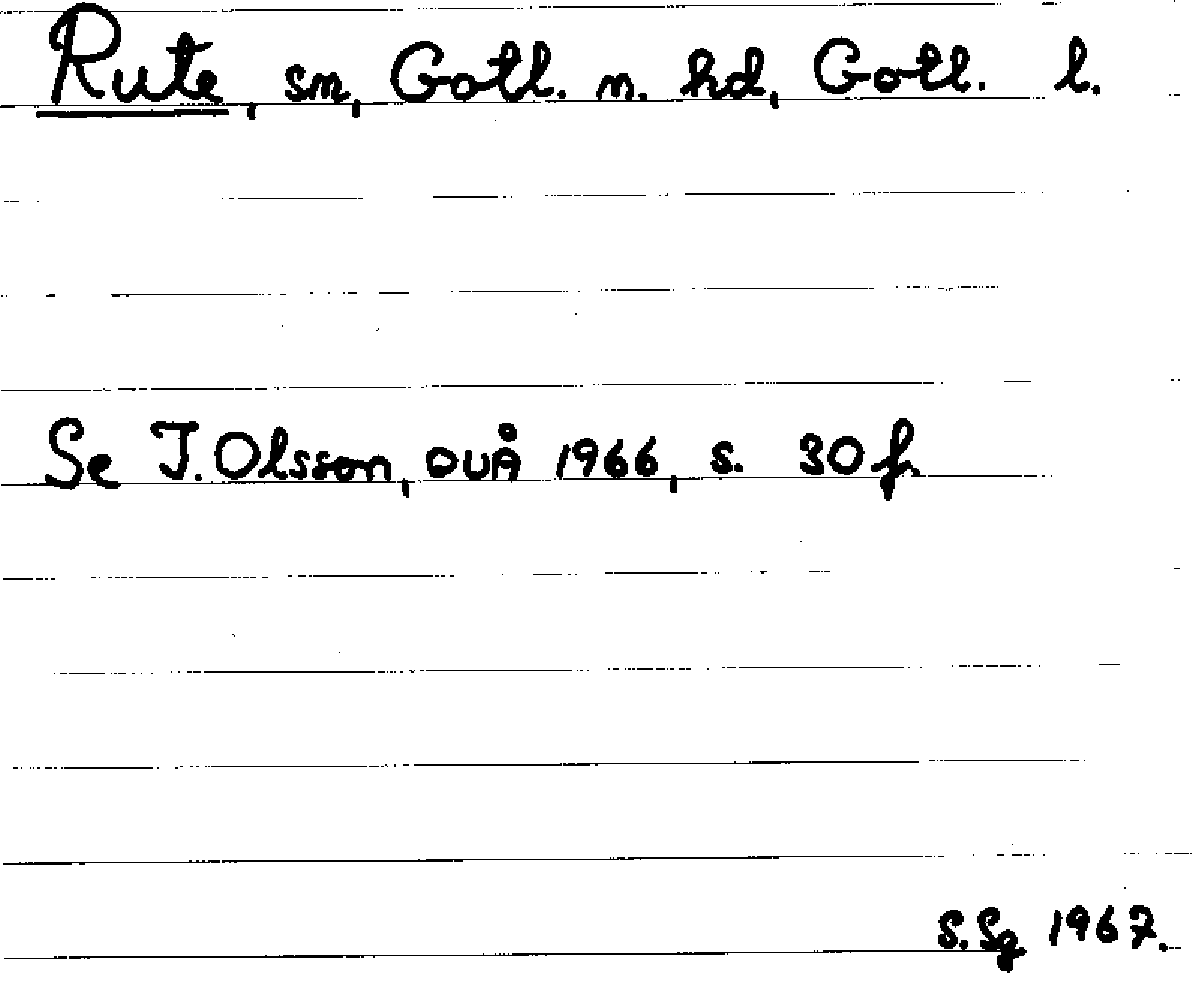 Rute, sn, Gotl. n. hd, Gotl. l.
Se I. Olsson, OUÅ 1966, s. 30 f.
S. Sg 1967.